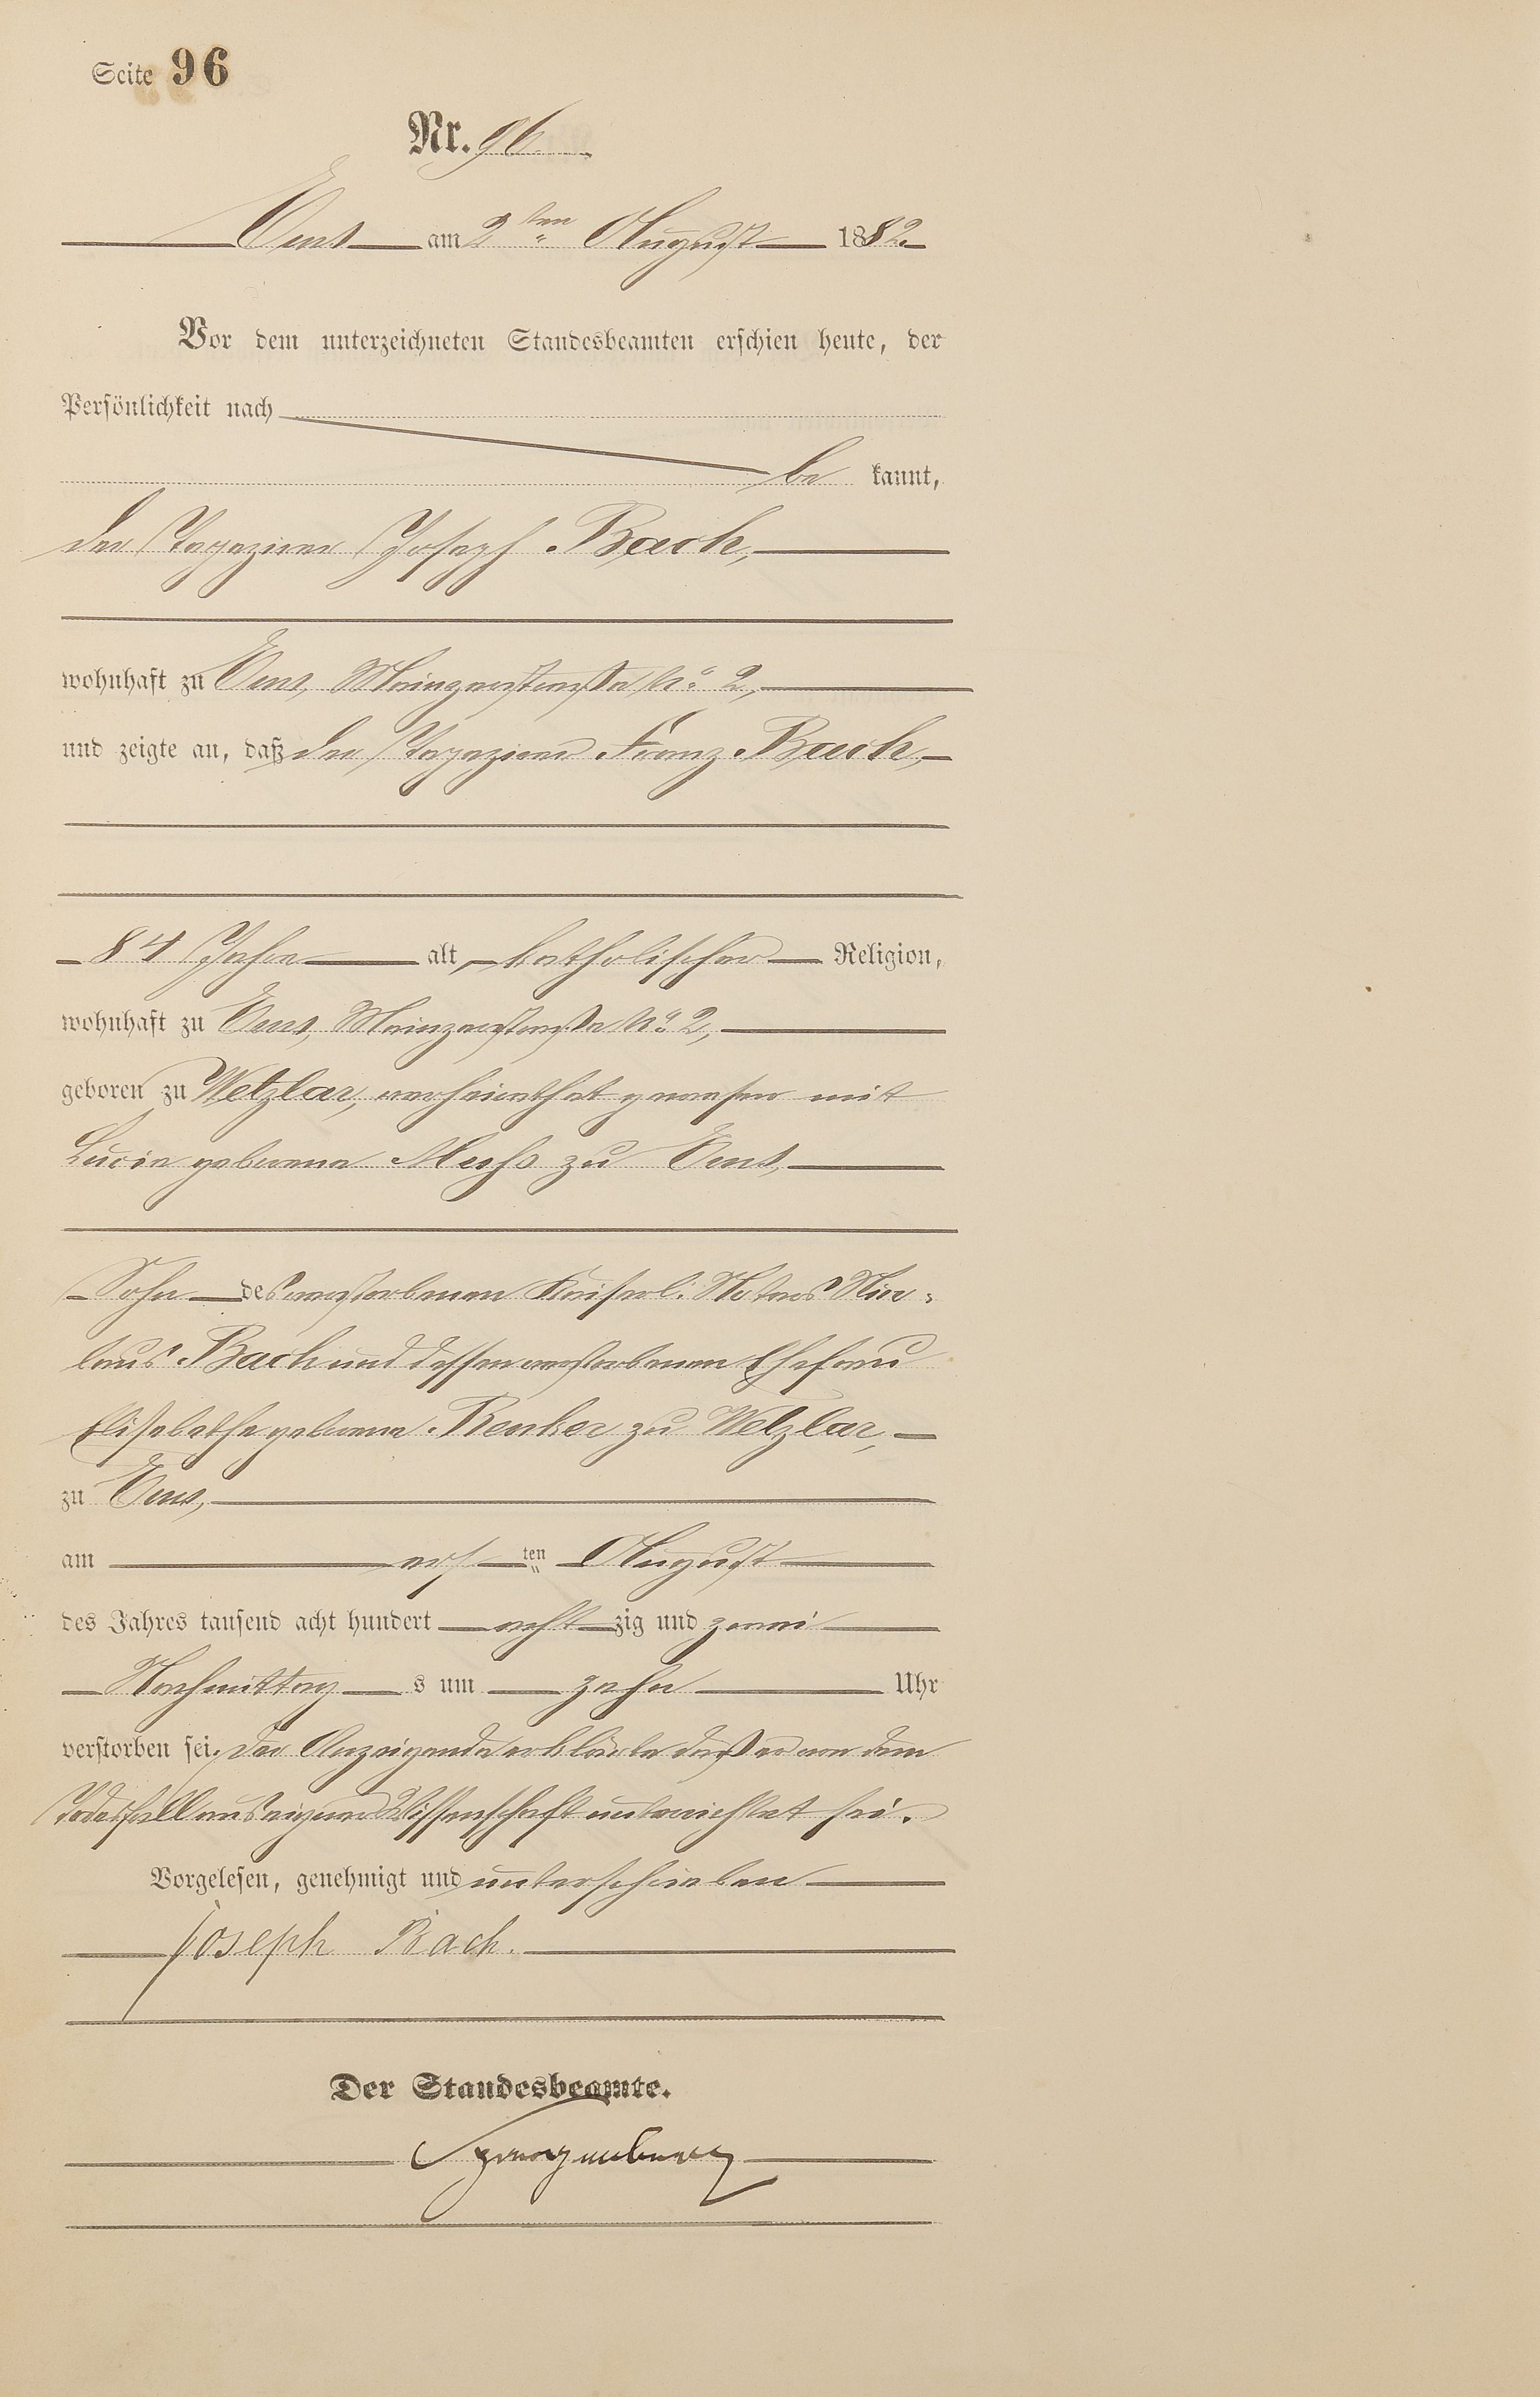 Seite 96
Nr. 96
Ems am 2ten August 1882.
Vor dem unterzeichneten Standesbeamten erschien heute, der
Persönlichkeit nach
be kannt,
der Tapezirer Joseph Bach,
wohnhaft zu Ems, Mainzerstraße No. 2,
und zeigte an, daß der Tapezirer Franz Bach,
84 Jahre alt, katholischer Religion,
wohnhaft zu Ems, Mainzerstraße No. 2,
geboren zu Wetzlar, verheirathet gewesen mit
Lucie geborene zu Ems,
Sohn des verstorbenen Kaiserl. Notars Nico=
laus Bach und dessen verstorbenen Ehefrau
Elisabethe geborene Benker zu Wetzlar,
zu Ems,
am ers ten August
des Jahres tausend acht hundert acht zig und zwei
Nachmittag s um zehn Uhr
verstorben sei. Der Anzeigende erklärte daß er von dem
Todesfall aus eigener Wissenschaft unterrichtet sei.
Vorgelesen, genehmigt und unterschrieben
Joseph Bach.
Der Standesbeamte.
Spangenberg